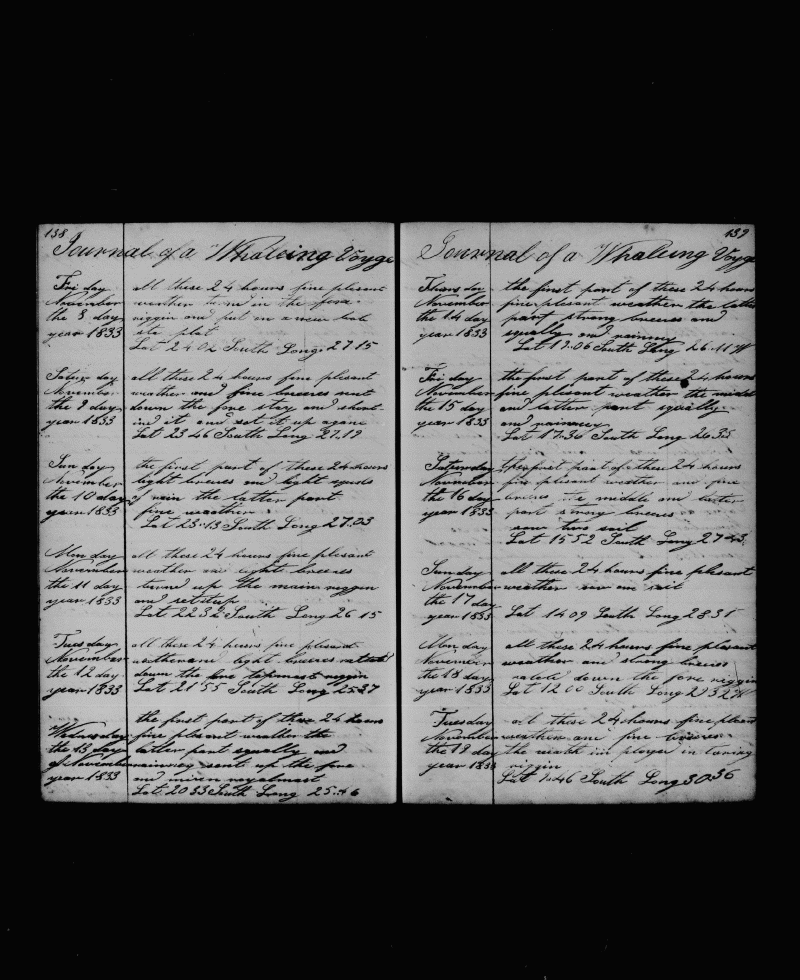 138
Journal of a Whaleing Voyge
Fri day
November
the 8 day
year 1833
all these 24 hours fine plesent
weather in the fore
riggin and put in a new
Lat 24 02 South Longi 27 15
Saterr day
November
the 9 day
year 1833
all these 24 hours fine plesent
weather and fine breezes
down the fore stay and short
ind it and set it up agane
Lat 23 46 South Long 27.19
Sun day
November
the 10 day
year 1833
the first part of these 24 hours
light breezes and light
of rain the latter part
fine weather
Lat 23.13 South Long 27.03
Mon day
November
the 11 day
year 1833
all these 24 hours fine plesant
weather and light breezes
turnd up the main riggin
and set
Lat 22 32 South Long 26 15
Tues day
November
the 12 day
year 1833
all these 24 hours fine plesend
weather and light breezes
down the fore topmast riggin
Lat 21 55 South Long 25 37
Wednesday
the 13 day
of November
year 1833
the first part of these 24 hours
fine plesent weather the
latter part squally and
rainney sent up the fore
and mizen royalmast
Lat 20 33 South Long 25.46
139
Journal of a Whaleing Voyge
Thurs day
November
the 14 day
year 1833
the first part of these 24 hours
fine plesant weather the latter
part strong breezes and
squally and rainney
Lat 19.06 South Long 26.11 W
Fri day
November
the 15 day
year 1833
the first part of these 24 hours
fine plesant weather the midel
and latter part squally
and rainney
Lat 17.36 South Long 26 35
Saturday
November
the 16 day
year 1833
the first part of these 24 hours
fine plesent weather and fine
breezes the midele and latter
part strong breezes
saw two sail
Lat 15 52 South Long 27 43
Sunday
November
the 17 day
year 1833
all these 24 hours fine plesant
weather sail
Lat 14 09 South Long 28 31
Mon day
November
the 18 day
year 1833
all these 24 hours fine plesant
weather and strong breezes
down the fore riggin
Lat 12 00 South Long 29 32 W
Tuesday
November
the 19 day
year 1833
all these 24 hours fine plesent
weather and fine breezes
the in
riggin
Lat South Long 30 36